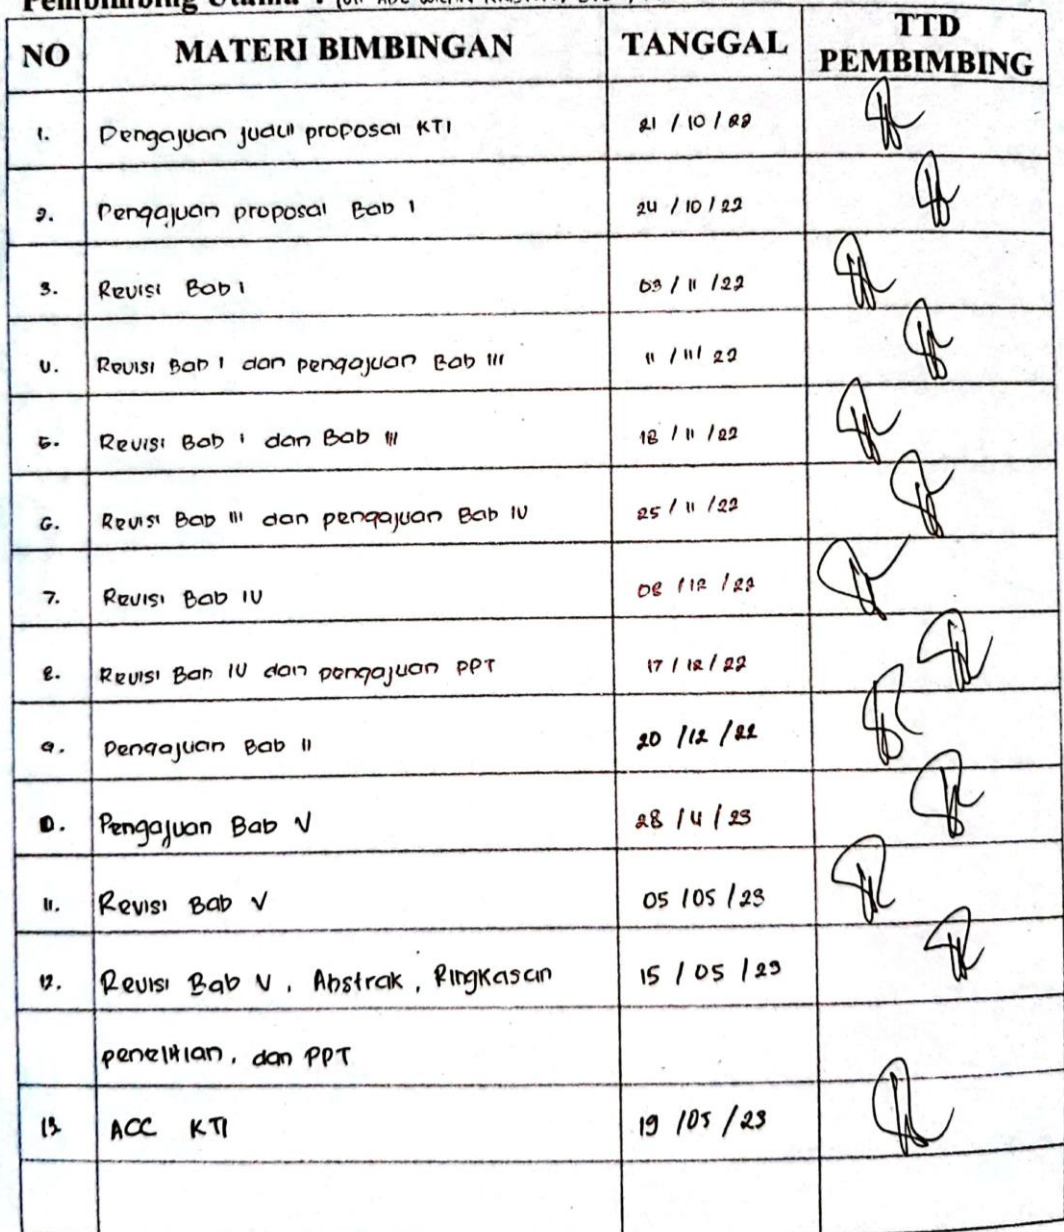 Pembimbing Utama :
NO MATERI BIMBINGAN TANGGAL TTD PEMBIMBING
1. Pengajuan judul proposal KTI 21 / 10 / 22
2. Pengajuan proposal Bab I 24 / 10 / 22
3. Revisi Bab I 03 / 11 / 22
4. Revisi Bab I dan pengajuan Bab III 11 / 11 / 22
5. Revisi Bab I dan Bab III 18 / 11 / 22
6. Revisi Bab III dan pengajuan Bab IV 25 / 11 / 22
7. Revisi Bab IV 08 / 12 / 22
8. Revisi Bab IV dan pengajuan PPT 17 / 12 / 22
9. Pengajuan Bab II 20 / 12 / 22
10. Pengajuan Bab V 28 / 4 / 23
11. Revisi Bab V 05 / 05 / 23
12. Revisi Bab V, Abstrak, Ringkasan 15 / 05 / 23
penelitian, dan PPT
13 ACC KTI 19 / 05 / 23